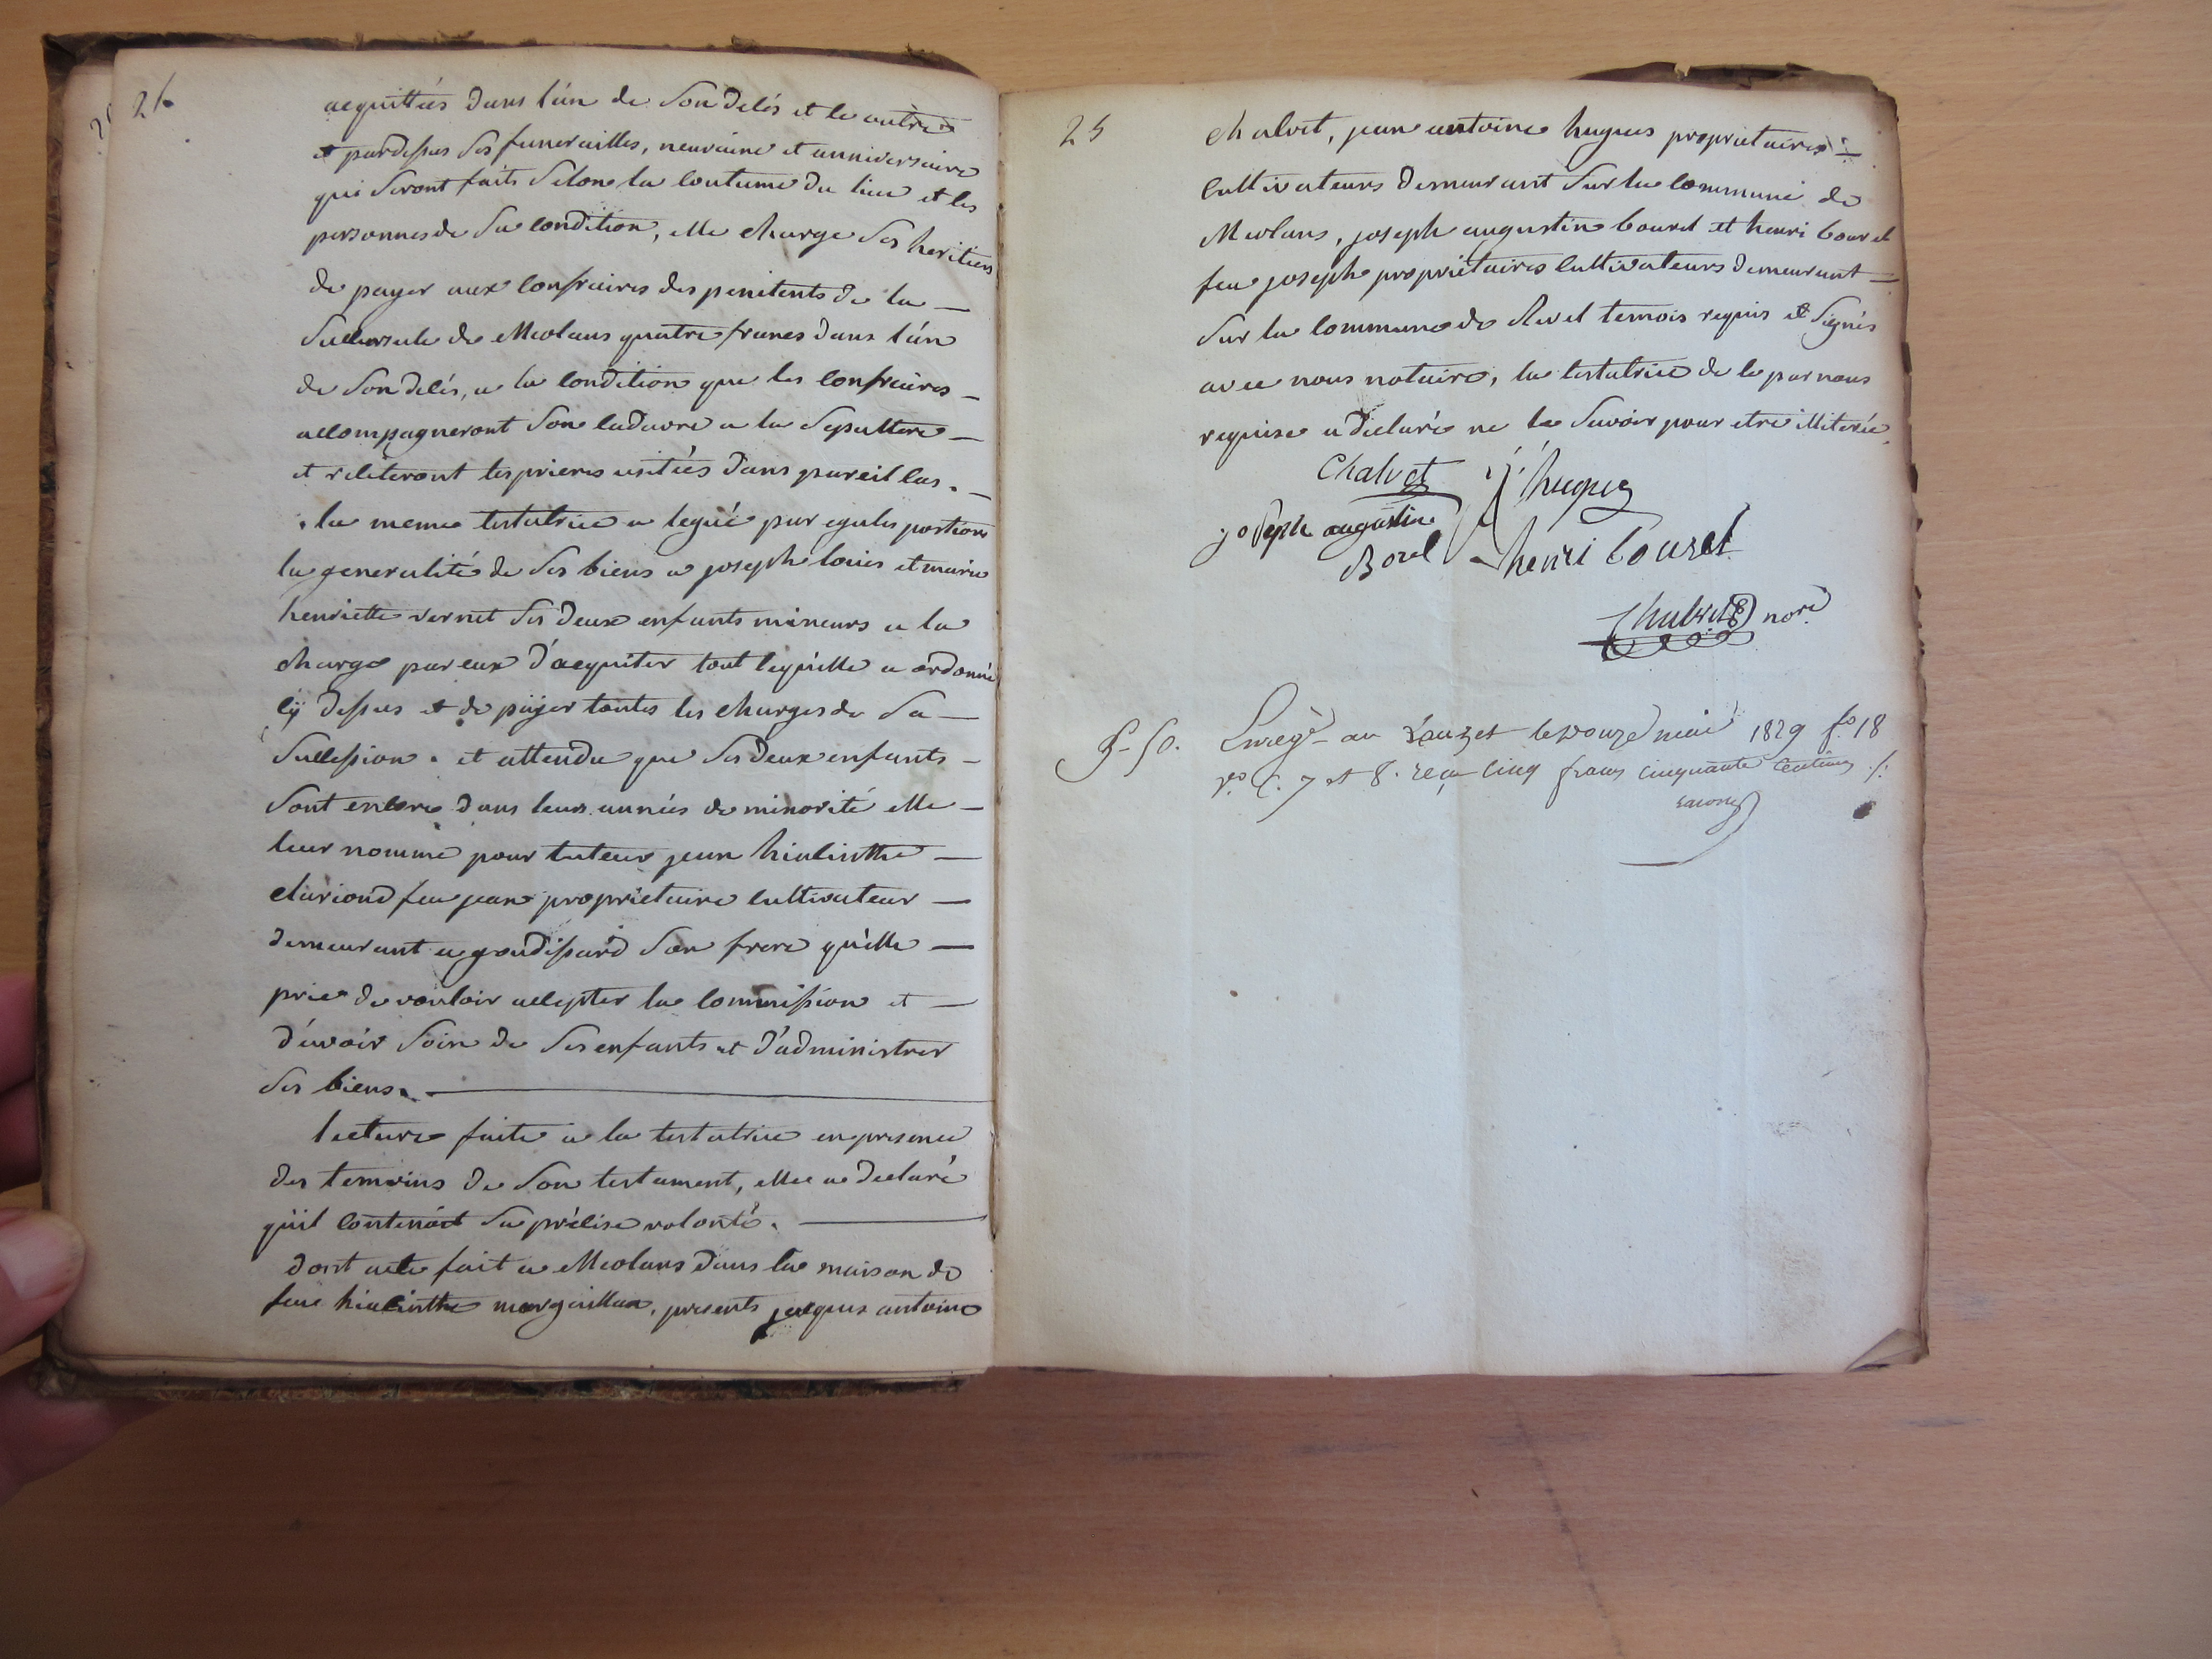 24
acquittées dans l'an de son délés et le autre
et pardessus ses funerailles, neuvaine et anniversaire
qui seront faits selon la coutume du lieu et les
personnes de sa condition, elle charge ses heritiers
de payer aux confraires des penitents de la —
succursale de Meolans quatre francs dans l'an
de son délés, a la condition que les confraires —
accompagneront son cadavre a la sepulture —
et reciteront les prieres usitées dans pareil cas. —
la meme testatrice a legué par egales portions
la generalité de ses biens a joseph louis et marie
henriette vernet ses deux enfants mineurs a la
charge par eux d'acquiter tout ce qu'elle a ordonné
cÿ dessus et de päyer toutes les charges de sa —
succession. et attendu que ses deux enfants —
sont encore dans leurs années de minorité elle —
leur nomme pour tuteur jean hiacinthe —
clariond feu jean proprietaire cultivateur —
demeurant a gaudissard son frere qu'elle —
prie de vouloir accepter la commission et —
d'avoir soin de ses enfants et d'administrer
ses biens. —
lecture faite a la testatrice en presence
des temoins de son testament, elle a declaré
qu'il contenoit sa précise volonté. —
dont acte fait a Meolans dans la maison de
feu hiacinthe margaillan, presents jacques antoine
25
chalvet, jean antoine hugues proprietaires
cultivateurs demeurant sur la commune de
Meolans, joseph augustin bouret et henri bouret
feu joseph propriétaires cultivateurs demeurant —
sur la commune de Revel temois requis et signés
avec nous notaire, la testatrice de ce par nous
requise a declaré ne le savoir pour etre illiterée.
Chalvet j. hugues
joseph augustin
Borel henri Bouret
Chabrand nore
5-50. Enregé au Lauzet le douze mai 1829 fo. 18
vo. C. 7 et 8. reçu cinq francs cinquante centimes ./.